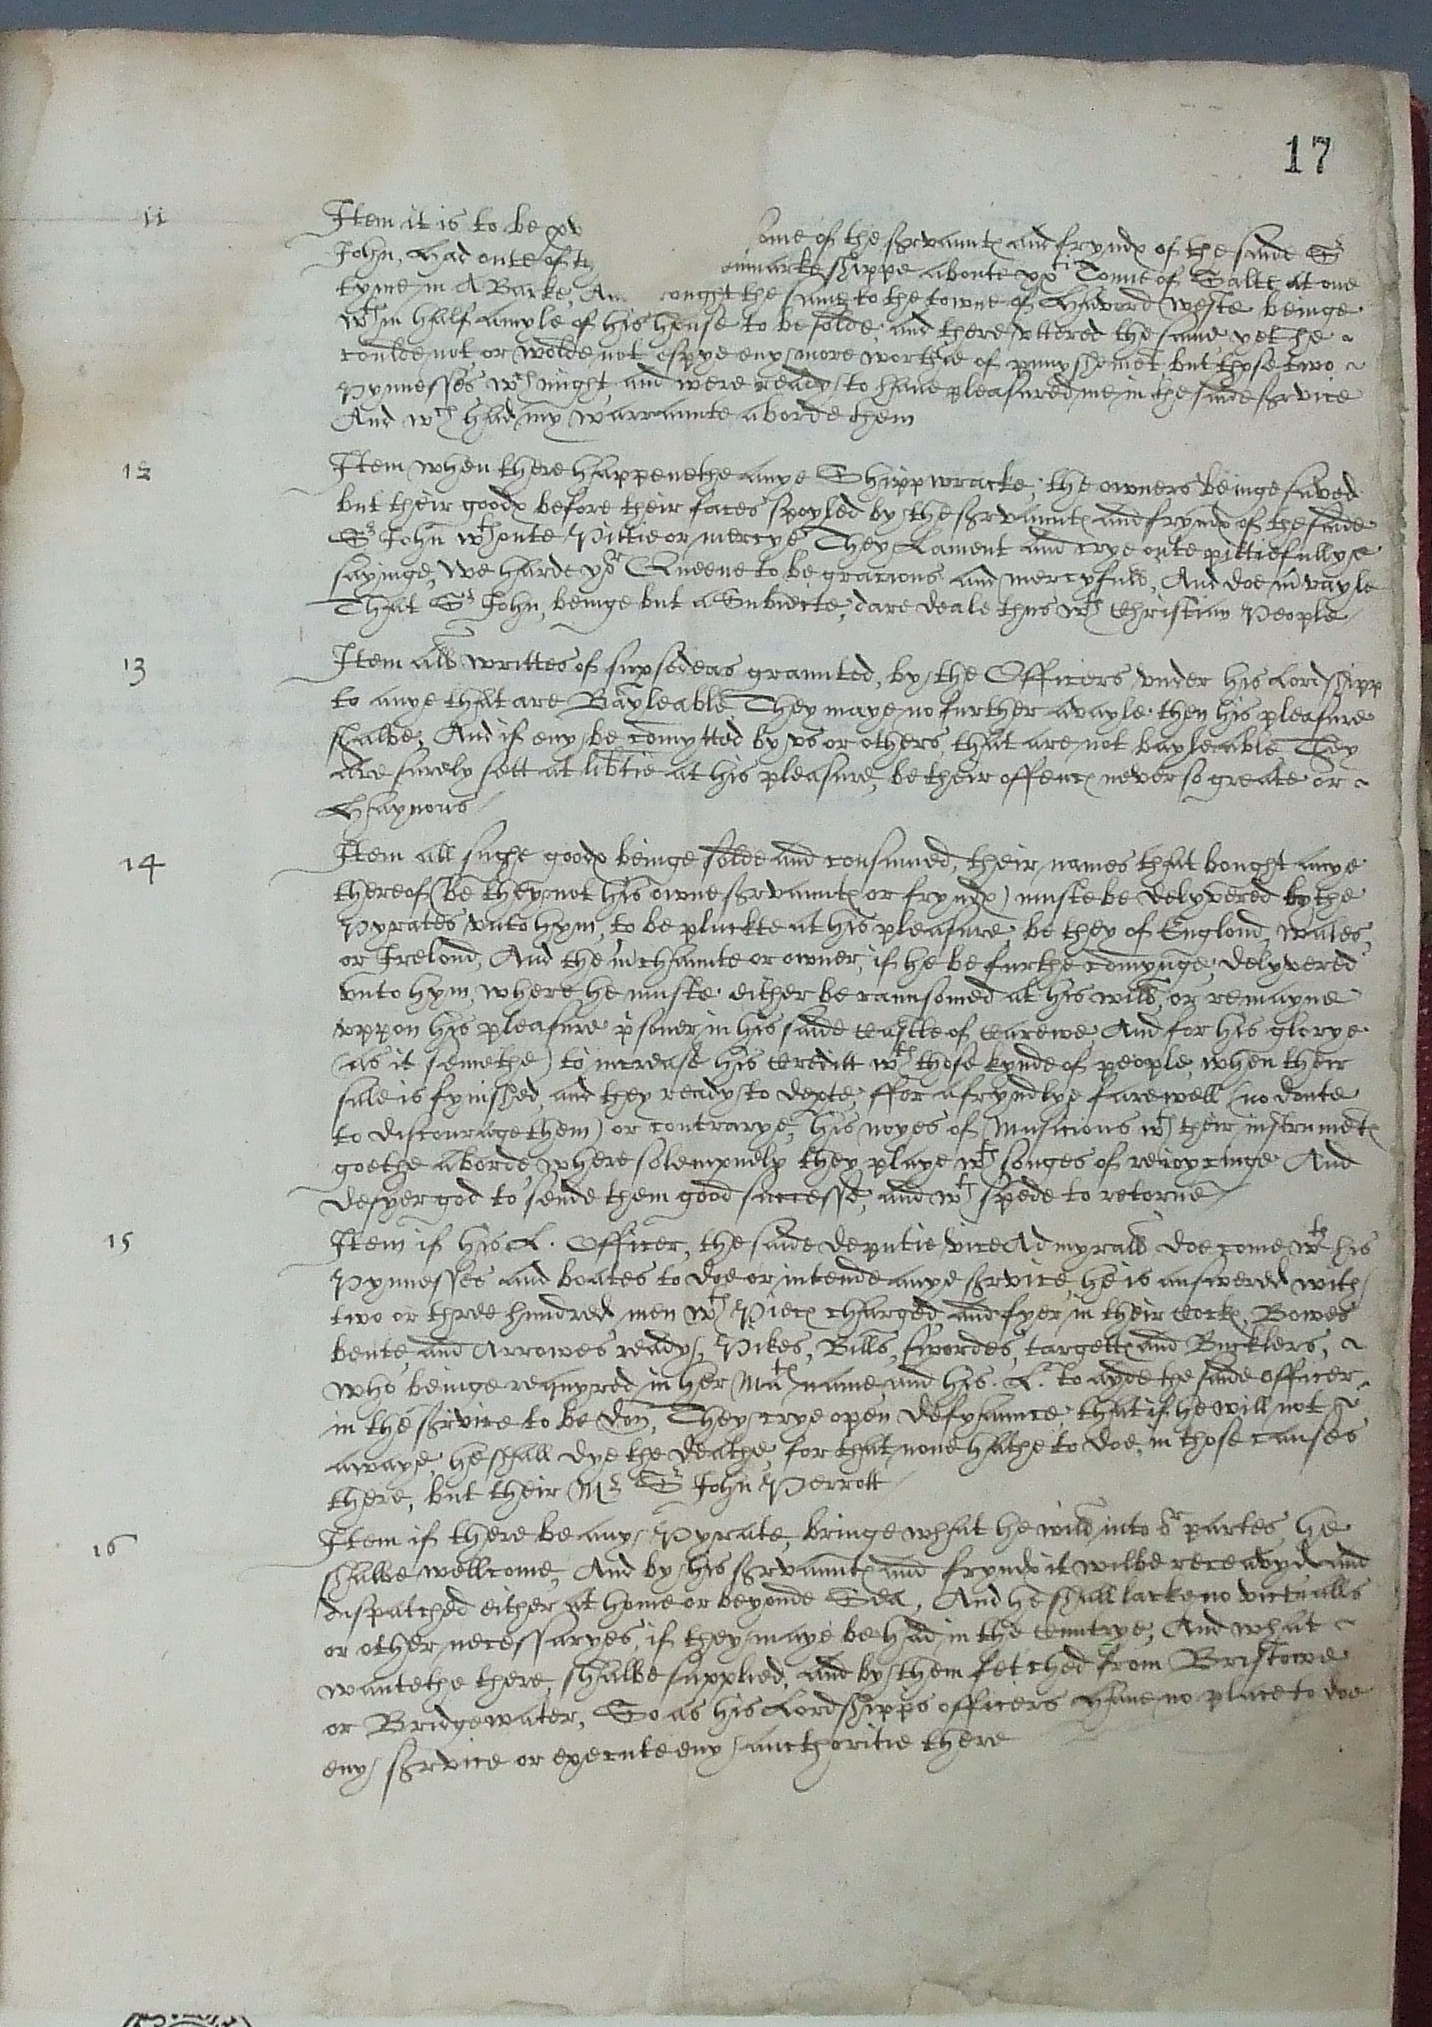 17
11 Item it is to be pv some of the servauntes and fryndes of the saide Sr
John, had oute of th enmarke shippe aboute xxtie Tonne of Salte at one
tyme in A Barke, An ought the same to the towne of Haverd weste beinge
wth in half a myle of his house to be solde, and there uttered the same yet he
coulde not or wolde not espye eny more worthie of punyshemet, but thyse two
Pynnesses wch might, and were ready to have pleasured me in the saide service
And wch had my warraunte aborde them
12 Item when there happenethe anye Shippwracke, the owners beinge saved
but their goodes before their faces spoyled by the servauntes and fryndes of the saide
Sr John wthoute Pittie or mercye They Lament and crye oute pittiefullye
sayinge, we harde yor Queene to be gracious and mercyfull, And doe mvayle
That Sr John, beinge but a Subiecte, dare deale thus wth Christian People
13 Item all writtes of supsedeas graunted, by the Officers under his Lordshipp
to anye that are Bayleable They maye no further avayle then his pleasure
shalbe, And if eny be comytted by us or others, that are not bayleable They
are surely sett at libtie at his pleasure, be their offences never so greate or
Haynous
14 Item all suche goodes beinge solde and consumed, their names that bought anye
thereof (be they not his owne servauntes or fryndes) muste be delyvered by the
Pyrates unto hym, to be pluckte at his pleasure, be they of Englond, wales,
or Irelond, And the mchaunte or owner, if he be furthe comynge, delyvered
unto hym, where he muste either be raunsomed at his will, or remayne
uppon his pleasure psoner in his saide Castle of Carewe And for his glorye
(as it semethe) to increase his Creditt wth those kynde of people, when their
sale is fynished, and they ready to depte, ffor a fryndlye farewell (no doute
to discourage them) or contrarye, his noyes of Musicions wth their instrumetes
goethe aborde where solempnely they playe wth songes of reioycinge And
desyer god to sende them good successe, and wth spede to retorne
15 Item if his L. Officer, the saide deputie vice Admyrall doe come wth his
Pynnesses and boates to doe or intende anye service, he is answered with
two or three hundred men wth Pieces charged and fyer in their Cockes, Bowes
bente and Arrowes ready, Pikes, Bills, swordes, targettes and Bucklers,
who beinge requyred in her Mates name and his . L. to ayde the saide officer
in the service to be don, They crye open defyaunce, that if he will not
awaye, he shall dye the deathe, for that none hathe to doe, in those causes
there, but their Mr Sr John Perrott
16 Item if there be any Pyrate, bringe what he will into or partes he
shalbe wellcome, And by his servauntes and fryndes it wilbe receavyd and
dispatched either at home or beyonde Sea, And he shall lacke no victualls
or other necessaryes, if they maye be had in the Cuntrye, And what
wantethe there, shalbe supplied, and by them fetched from Bristowe
or Bridgewater, So as his Lordshipps officers have no place to doe
eny service or execute eny aucthoritie there